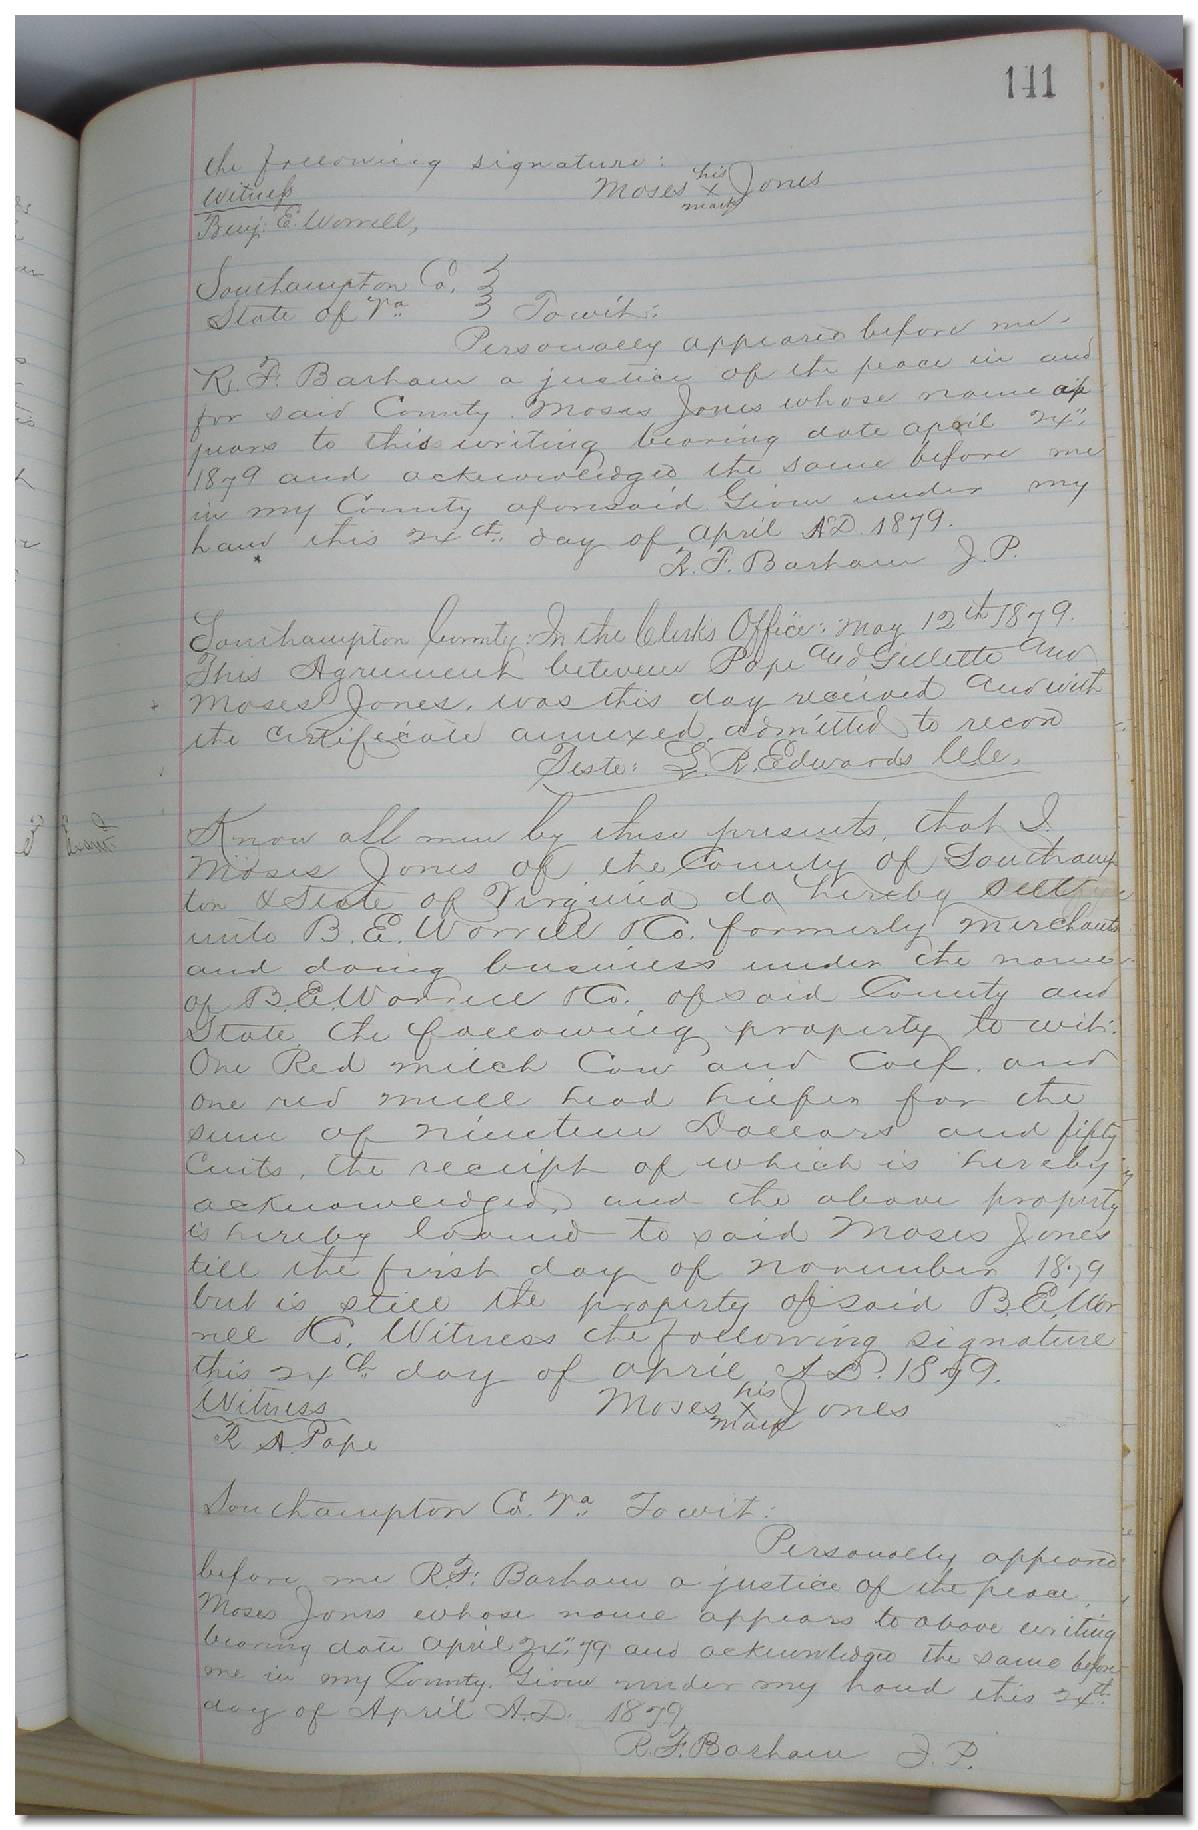 141
the following signature:
Witness
Moses his x mark Jones
Benj. E. Worrell,
Southampton Co. }
State of Va } Towit:
Personally appeared before me,
R. F. Barham a justice of the peace in and
for said County. Moses Jones whose name ap
pears to this writing bearing date april 24"
1879 and acknowledged the same before me
in my County aforesaid Given under my
hand this 24th day of april A.D. 1879.
R. F. Barham J. P.
Southampton County: In the Clerks Office: May 12th 1879.
This Agreement between Pope and Gillette and
Moses Jones, was this day received and with
the certificate annexed, admitted to record
Teste: L. R. Edwards
Know all men by these presents, that I.
Moses Jones of the County of Southamp
ton & State of Virginia do hereby sell
unto B. E. Worrell & Co. formerly merchants
and doing business under the name
of B. E. Worrell & Co. of said County and
State, the following property to wit:
One Red milch Cow and Calf, and
one red mull head heifer for the
sum of nineteen Dollars and fifty
Cents, the receipt of which is hereby
acknowledged, and the above property
is hereby loaned to said Moses Jones
till the first day of november 1879
but is still the property of said B. E. Wor
rell & Co. Witness the following signature
this 24th day of april A.D. 1879.
Witness
Moses his x mark Jones
R A. Pope
Southampton Co. Va Towit:
Personally appeared
before me R. F. Barham a justice of the peace,
Moses Jones whose name appears to above writing
bearing date April 24" 79 and acknowledged the same before
me in my County. Given under my hand this 24th
day of April A.D. 1879
R. F. Barham J. P.